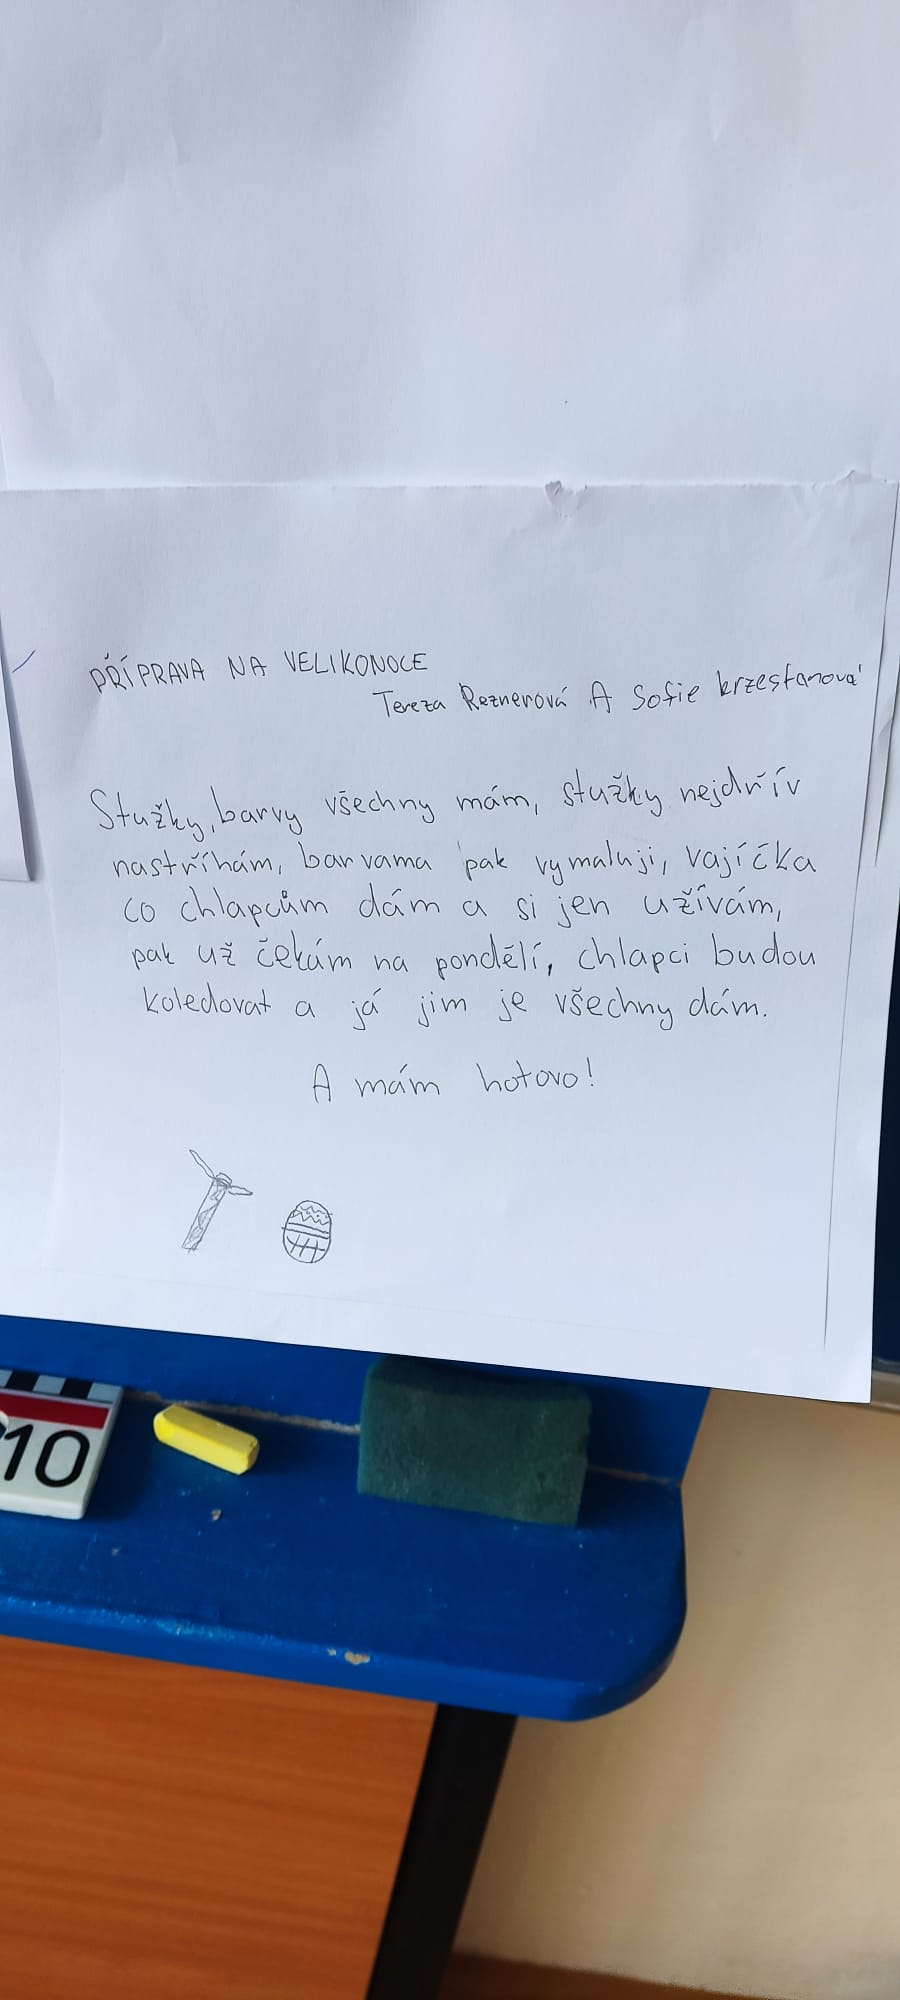 PŘÍPRAVA NA VELIKONOCE
Tereza Reznerová A Sofie krzestanová
Stužky, barvy všechny mám, stužky nejdřív
nastříhám, barvama pak vymaluji, vajíčka
co chlapcům dám a si jen užívám,
pak už čekám na pondělí, chlapci budou
koledovat a já jim je všechny dám.
A mám hotovo!
10